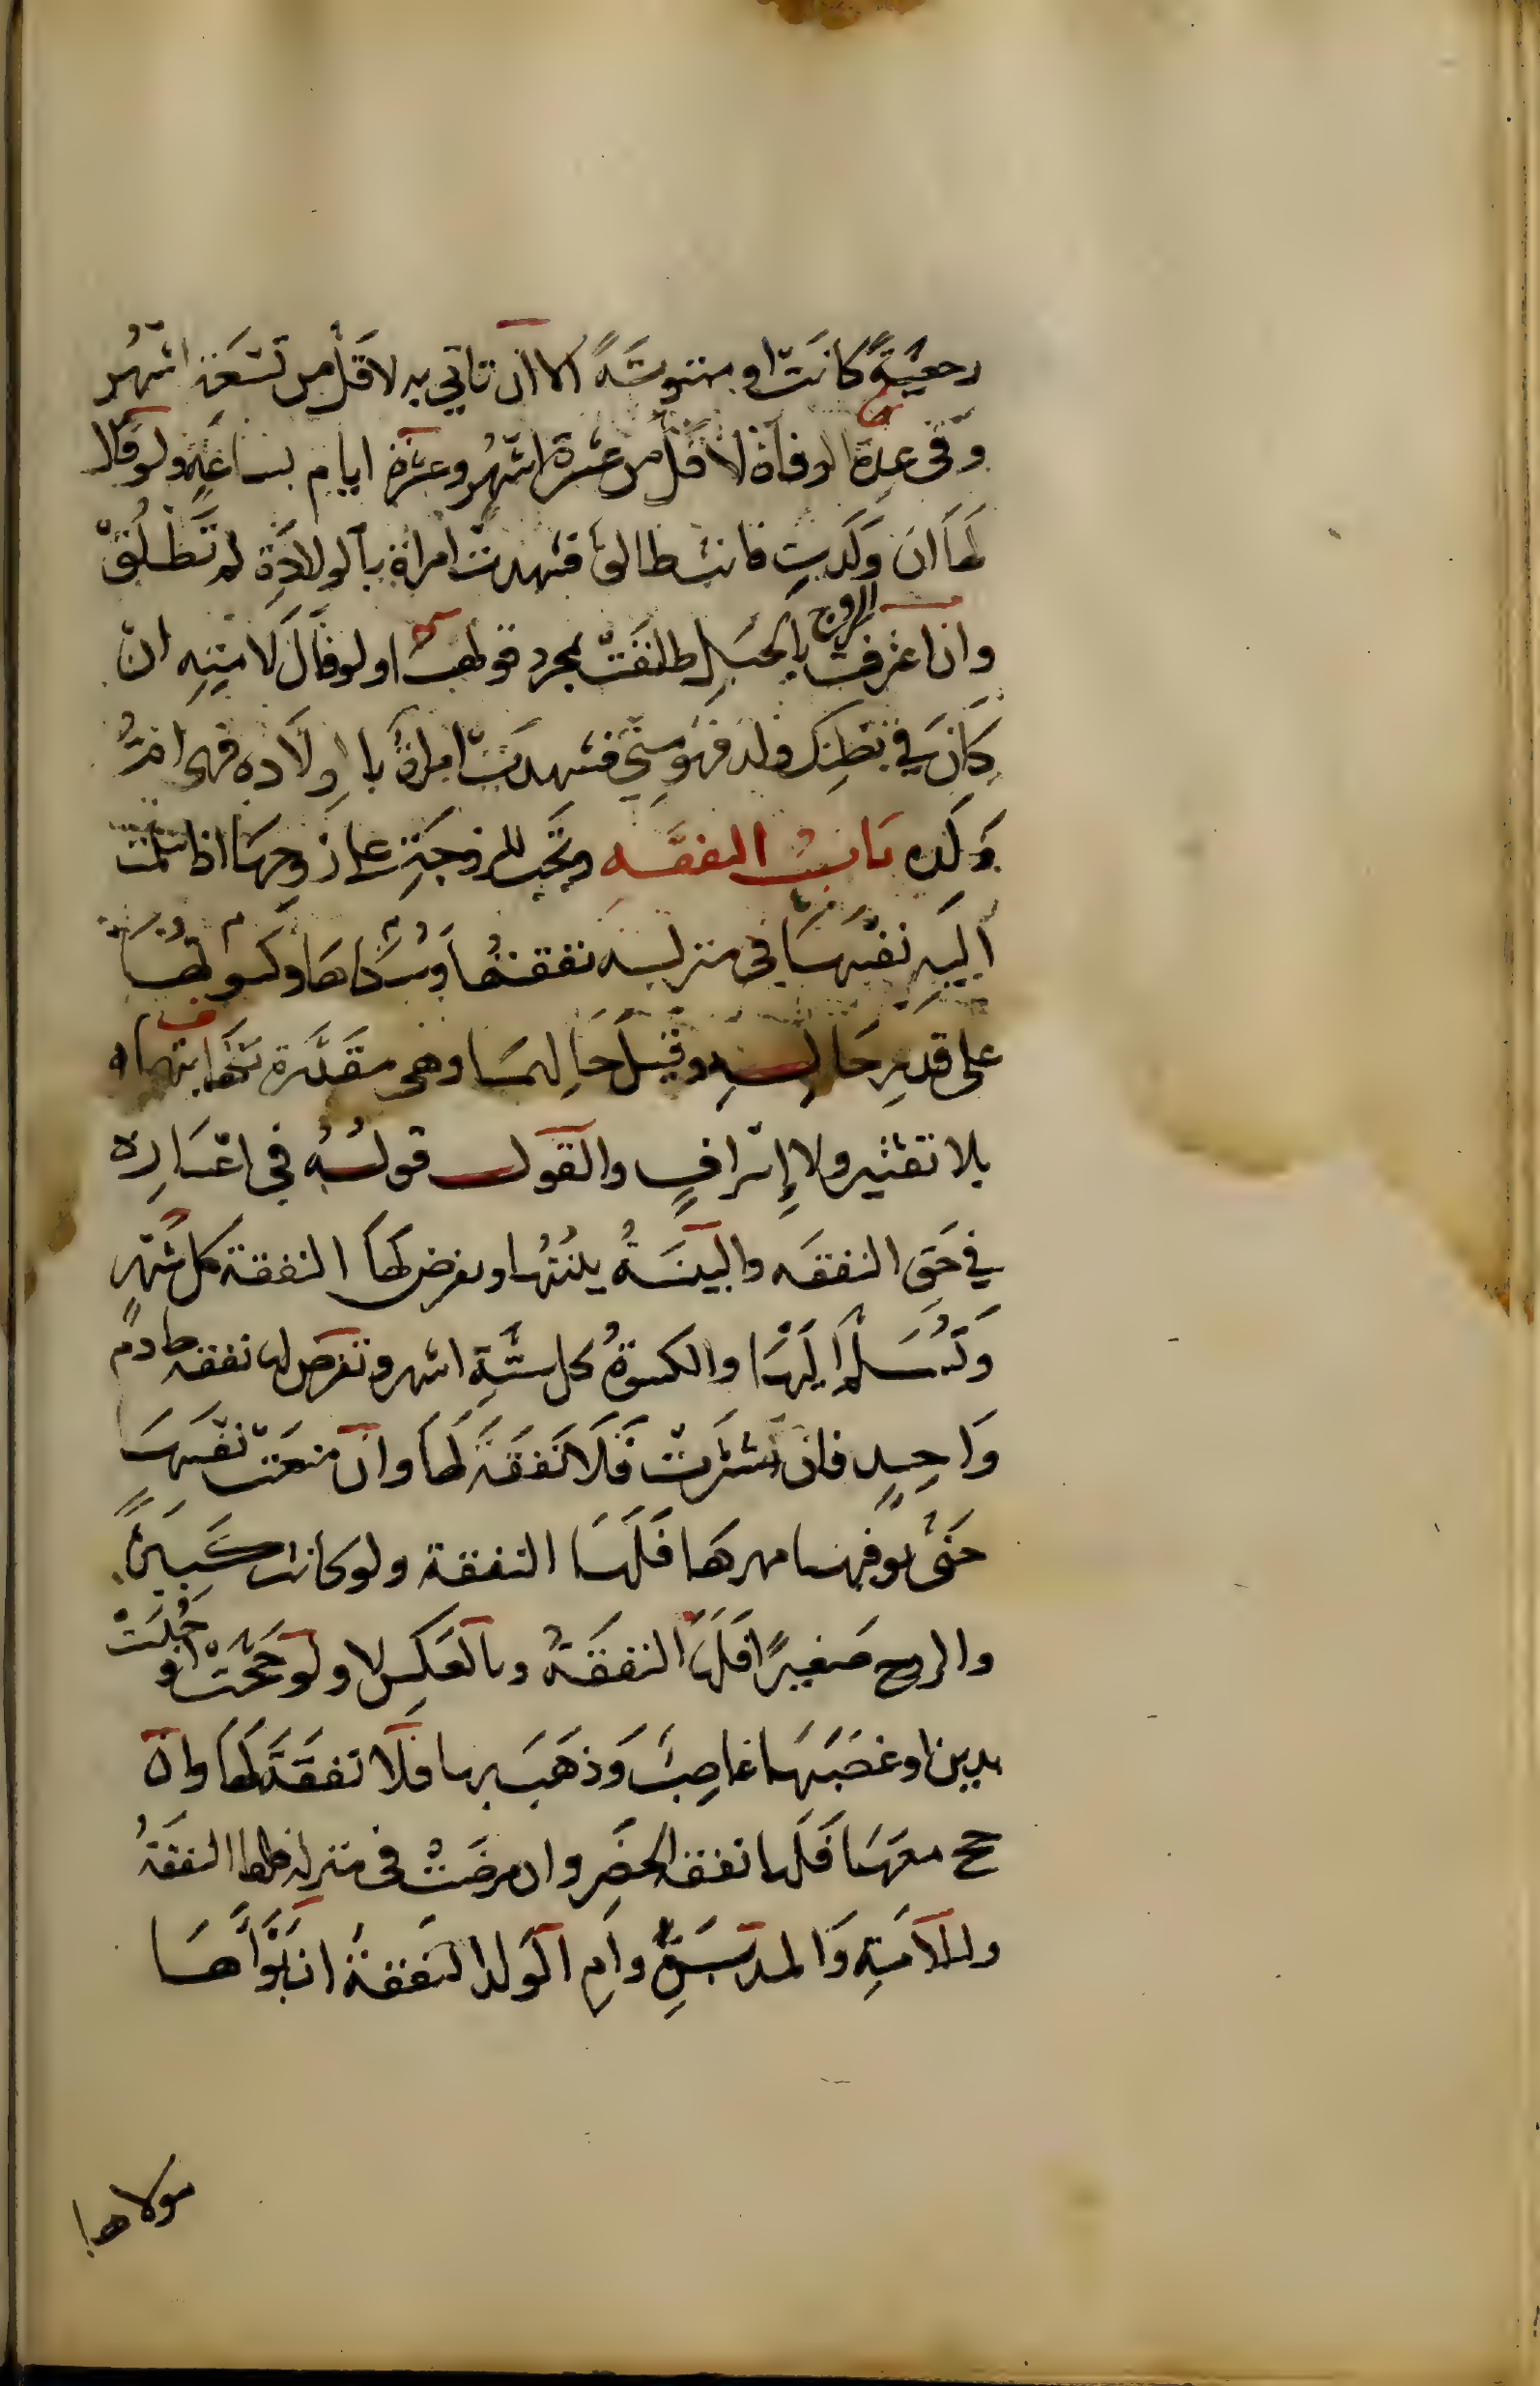 رجعيةً كانت او مبتوتةً الا ان تاتي به لاقل من تسعة اشهُر
وفي عدة الوفاة لاقل من عشرة اشهر وعشرة ايام بساعةٍ ولو قال
لها ان ولدتِ فانت طالق فشهدت امراة بالولادة لم تطلق
وان اعترف الزوج بالحبل طلقت بمجرد قولها ولو قال لامته ان
كان في بطنك ولد فهو مني فشهدت امراةٌ بالولاده فهي امُّ
ولده باب النفقه وتجب للزوجة على زوجها اذا سلمت
اليه نفسها في منزله نفقتها وسكناها وكسوتها
على قدرِ حاله وقيل حالهما وهي مقدرة بكفايتها
بلا تقتير ولا إسرافٍ والقول قولُهُ في اعساره
في حق النفقه والبينةُ بينتُها ويفرض لها النفقة كل شهرٍ
وتُسلَّم إليها والكسوةُ كل ستة اشهر وتفرض لها نفقه خادم
واحدٍ فان نشزت فلا نفقة لها وان منعت نفسها
حتى يوفيها مهرها فلها النفقة ولو كانت كبيرةً
والزوج صغيرًا فلها النفقةُ وبالعكس لا ولو حجت او حُبِسَتْ
بدين او غصبها غاصبٌ وذهب بها فلا نفقة لها وان
حج معها فلها نفقه الحضر وان مرضت في منزله فلها النفقةُ
وللامةِ والمدبرةِ وام الولد النفقةُ ان بوَّأها
مولاها